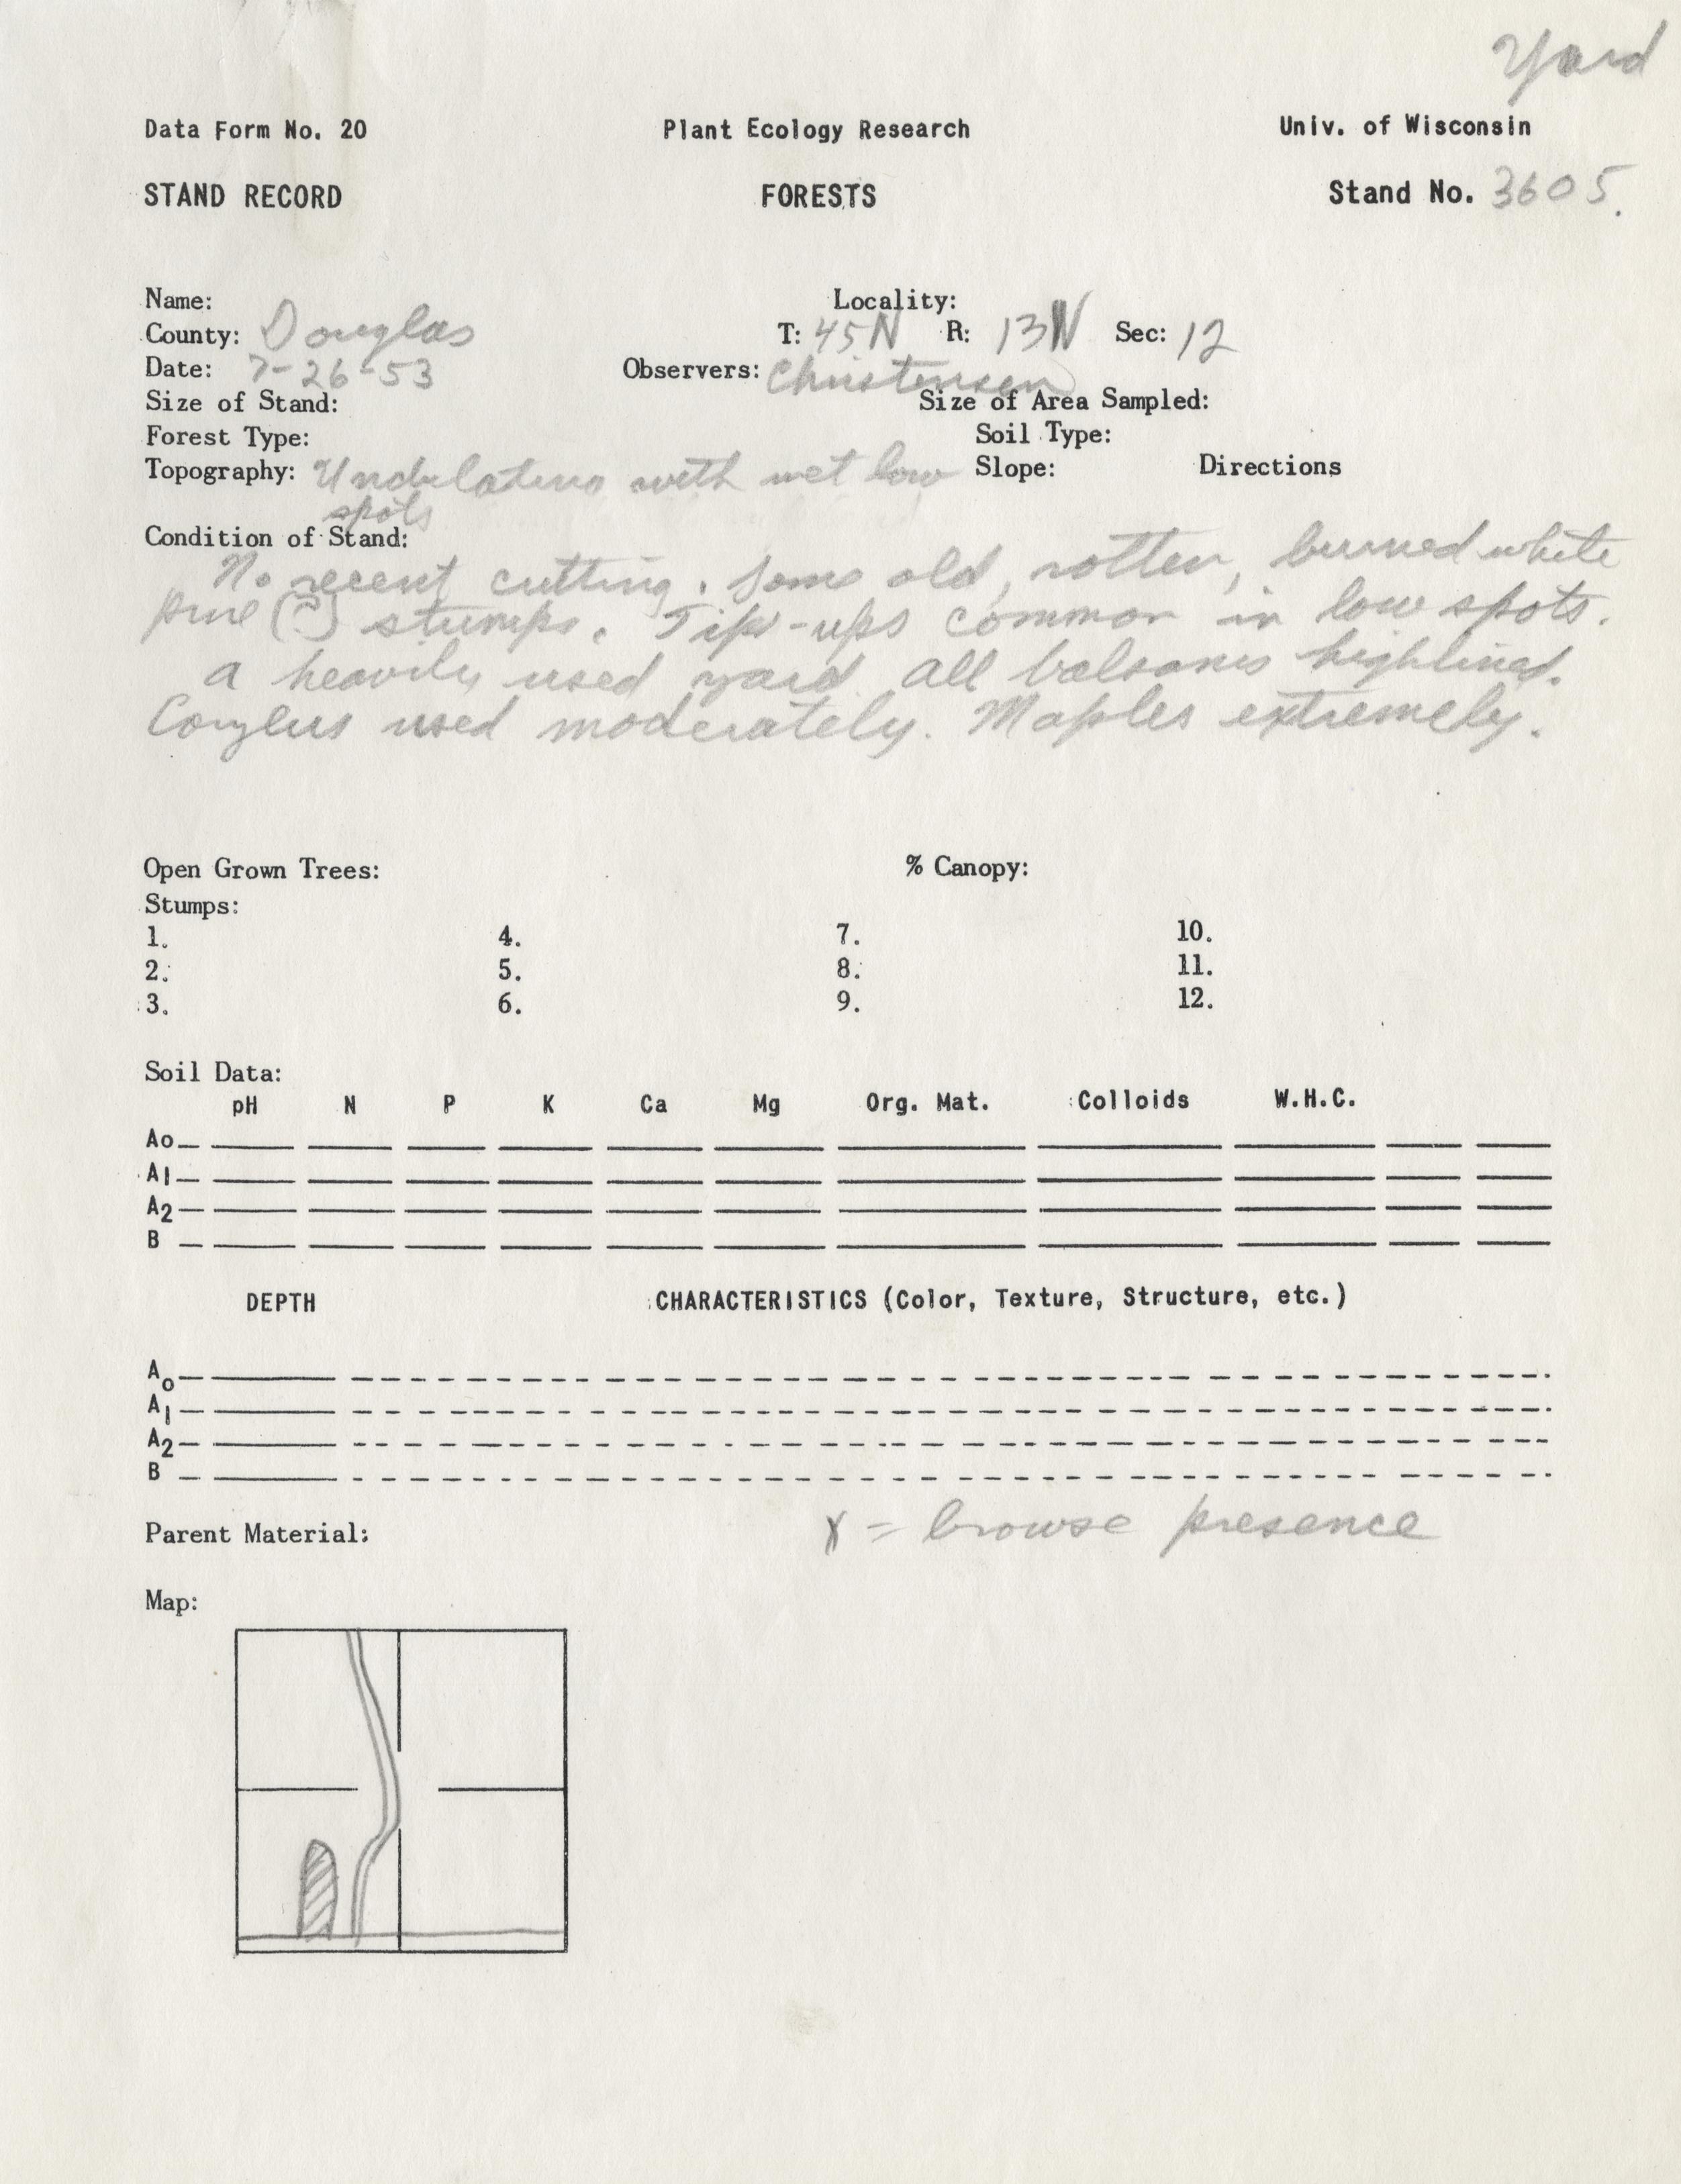 Yard
Data Form No. 20 Plant Ecology Research Univ. of Wisconsin
STAND RECORD FORESTS Stand No. 3605.
Name: Locality:
County: Douglas T: 45N R: 13W Sec: 12
Date: 7-26-53 Observers: Christensen
Size of Stand: Size of Area Sampled:
Forest Type: Soil Type:
Topography: Undulating with wet low Slope: Directions
spots
Condition of Stand:
No recent cutting. Some old, rotten, burned white
pine (?) stumps. Tip-ups common in low spots.
A heavily used yard. All balsams highlined.
Corylus used moderately. Maples extremely.
Open Grown Trees: % Canopy:
Stumps:
1. 4. 7. 10.
2. 5. 8. 11.
3. 6. 9. 12.
Soil Data:
pH N P K Ca Mg Org. Mat. Colloids W.H.C.
Ao
A1
A2
B
DEPTH CHARACTERISTICS (Color, Texture, Structure, etc.)
Ao
A1
A2
B
Parent Material: X = browse presence
Map: